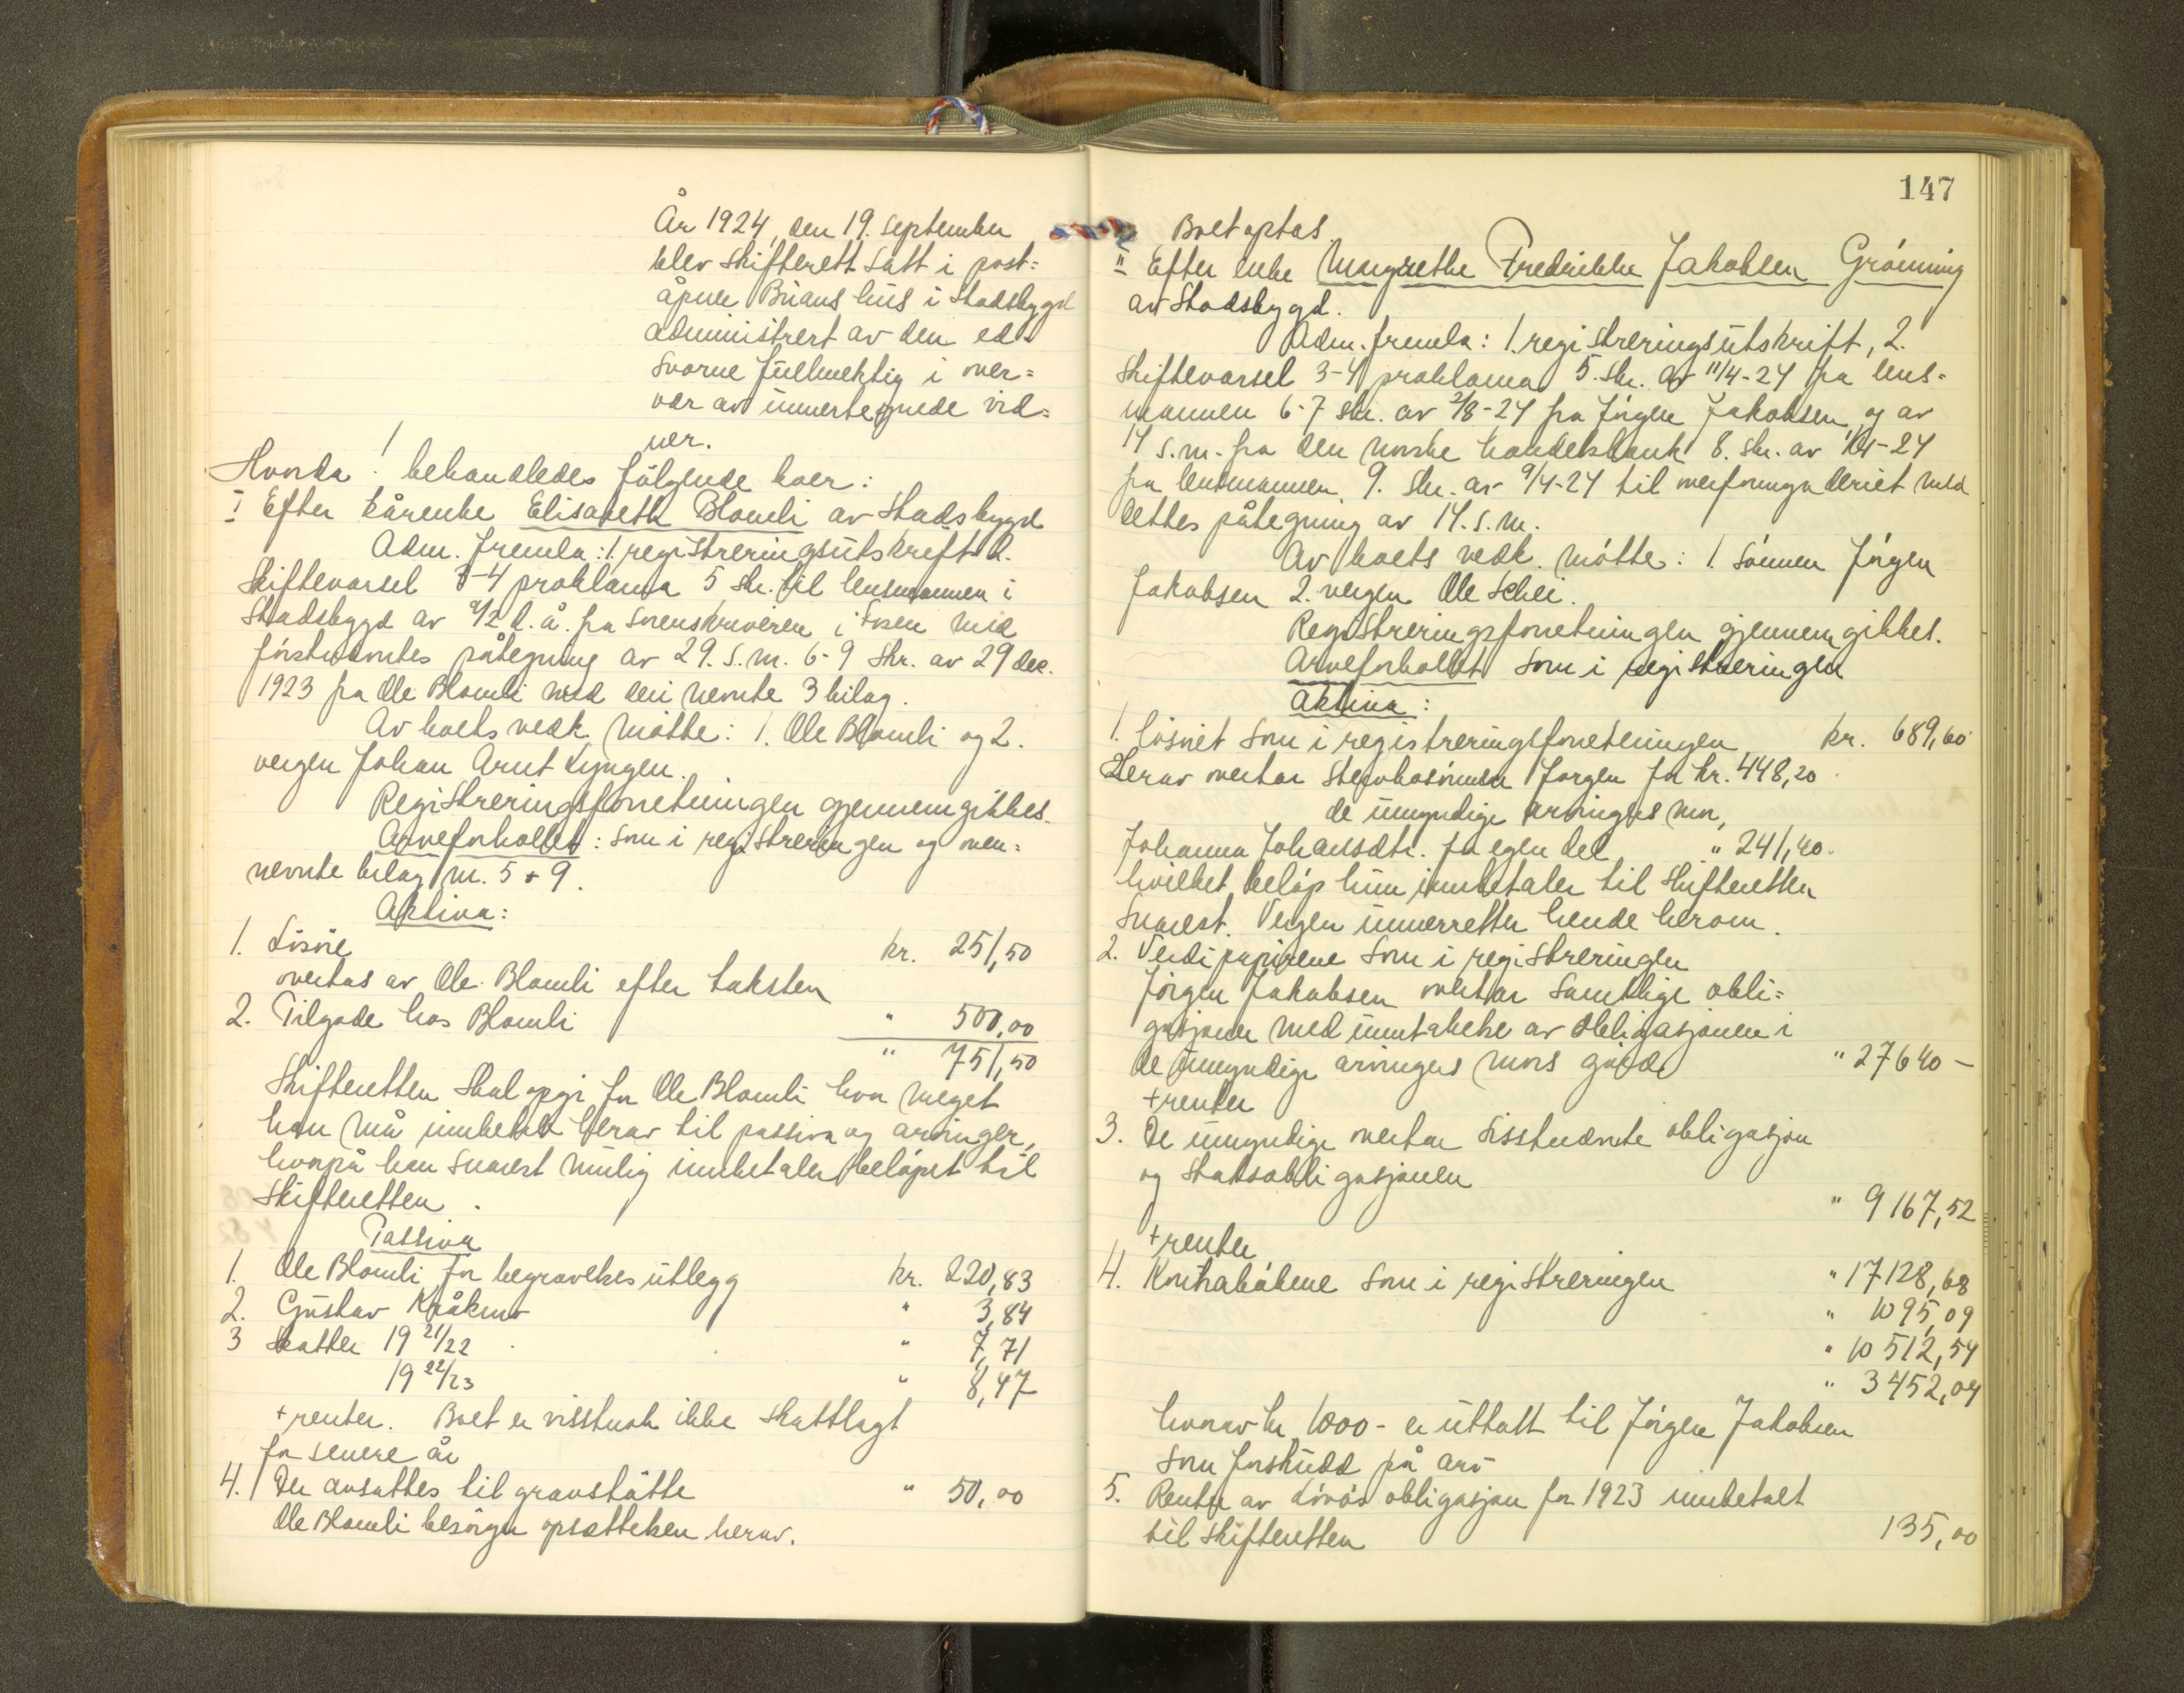 År 1924, den 19. september
blev skifterett satt i post=
åpner Bruans hus i Stadsbygd
administrert av den ed=
svorne fullmektig i over=
vær av unnertegnede vid=
ner.
Hvorda! behandledes følgende boer:
I Efter kårenke Elisabeth Blomli av Stadsbygd
Adm. fremla: 1. registreringsutskrift 2.
skiftevarsel 3-4 proklama 5 skr. til lensmannen i
Stadsbygd av 9/2 d. å. fra sorenskriveren i Fosen med
førstnevntes påtegning av 29. s. m. 6-9 skr. av 29 des.
1923 fra Ole Blomli med deri nevnte 3 bilag.
Av boets vedk. møtte: 1. Ole Blomli og 2.
vergen Johan Arnt Lyngen.
Registreringsforretningen gjennemgikkes.
Arveforholdet: som i registreringen og oven=
nevnte bilag nr. 5 + 9.
Aktiva:
1. Løsøre kr. 251,50
overtas av Ole Blomli efter taksten
2. Tilgode hos Blomli " 500,00
" 751,50
Skifteretten skal opgi for Ole Blomli hvor meget
han må innbetale herav til passiva og arvinger,
hvorpå han snarest mulig innbetaler beløpet til
skifteretten.
Passiva
1. Ole Blomli for begravelsesutlegg kr. 220,83
2. Gustav Kråkmo " 3,84
3 Skatter 19 21/22 " 7,71
19 22/23 " 8,47
+ renter. Boet er visstnok ikke skattlagt
for senere år
4. Der avsattes til gravstøtte " 50,00
Ole Blomli besørger opsettelsen herav.
147
Boet optas.
II Efter enke Margrethe Fredrikke Jakobsen Grønning
av Stadsbygd.
Adm. fremla: 1. registreringsutskrift, 2.
skiftevarsel 3-4 proklama 5. skr. av 11/4-24 fra lens=
mannen 6-7 skr. av 2/8-24 fra Jørgen Jakobsen og av
14 s. m. fra den norske handelsbank 8. skr. av 1/4-24
fra lensmannen, 9. skr. av 9/4-24 til overformynderiet med
dettes påtegning av 14. s. m.
Av boets vedk. møtte: 1. sønnen Jørgen
Jakobsen 2. vergen Ole Schei.
Registreringsforretningen gjennemgikkes.
Arveforholdet som i registreringen
Aktiva:
1. løsøret som i registreringsforretningen kr. 689,60
Herav overtar stervbosønnen Jørgen for kr. 448,20
de umyndige arvingers mor,
Johanna Johansdtr. for egen del " 241,40.
hvilket beløp hun innbetaler til skifteretten
snarest. Vergen unnerretter hende herom.
2. Verdipapirene som i registreringen
Jørgen Jakobsen overtar samtlige obli=
gasjoner med unntakelse av obligasjonen i
de umyndige arvingers mors gård " 27640 -
+ renter
3. De umyndige overtar sisstnevnte obligasjon
og statsobligasjonen " 9167,52
+ renter
4. Kontrabøkene som i registreringen " 17128,68
" 1095,09
" 10512,54
" 3452,04
hvorav kr. 1000- er uttatt til Jørgen Jakobsen
som forskudd på arv
5. Renter av obligasjon for 1923 innbetalt
til skifteretten 135,00